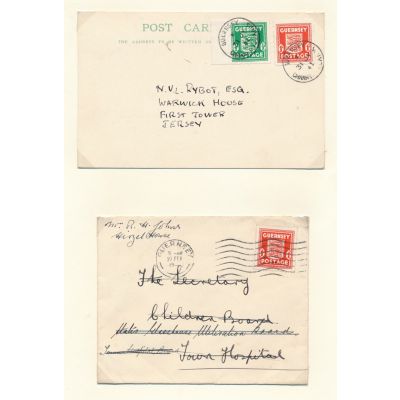 POST CARD
THE ADDRESS TO BE WRITTEN ON
GUERNSEY
POSTAGE
GUERNSEY
POSTAGE
N.V.L. RYBOT, ESQ.
WARWICK HOUSE
FIRST TOWER
JERSEY
Mr. R. H. Johns
GUERNSEY
GUERNSEY
POSTAGE
The Secretary
Children Board
States
Board
Town Hospital